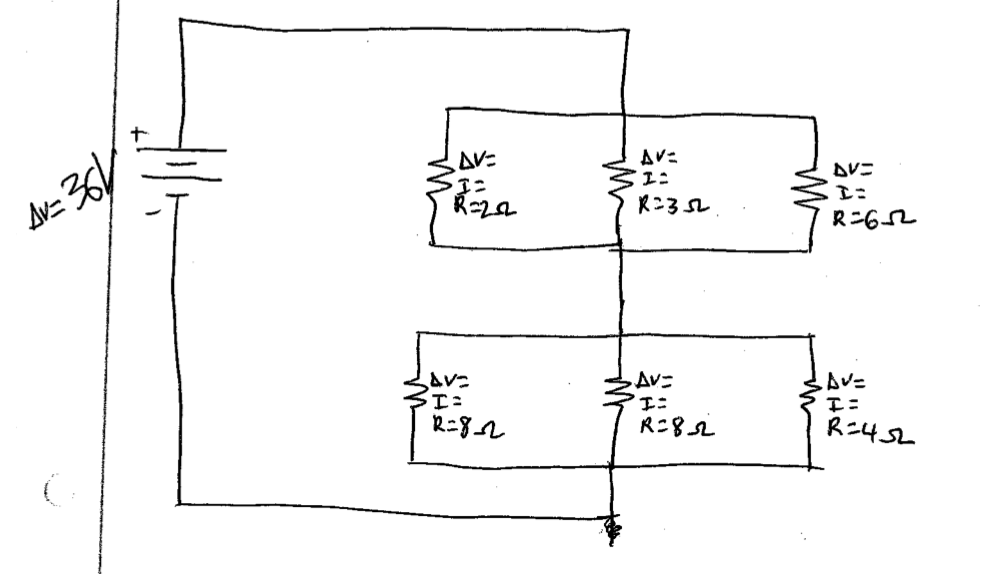 +
ΔV=36V
-
ΔV=
I=
R=2Ω
ΔV=
I=
R=3Ω
ΔV=
I=
R=6Ω
ΔV=
I=
R=8Ω
ΔV=
I=
R=8Ω
ΔV=
I=
R=4Ω